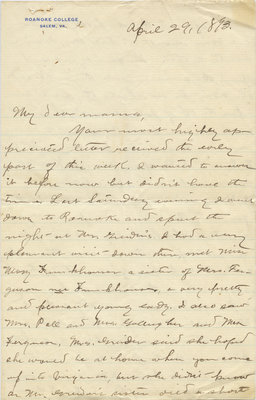 ROANOKE COLLEGE
SALEM, VA.
April 29, 1893.
My dear mama,
Your most highly ap-
preciated letter received the early
part of this week, I wanted to answer
it before now but didn't have the
time. Last Saturday evening I went
down to Roanoke and spent the
night at Mr. I had a very
pleasant visit down there met Miss
Missy Funkhouser a sister of Mrs. Fer-
guson nee Funkhouser, a very pretty
and pleasant young lady. I also saw
Mrs. Pell and Mrs. Gallagher and Mrs.
Ferguson, Mrs. said she hoped
she would be at home when you come
up into Virginia, but she didn't know
as Mr. sister died a short